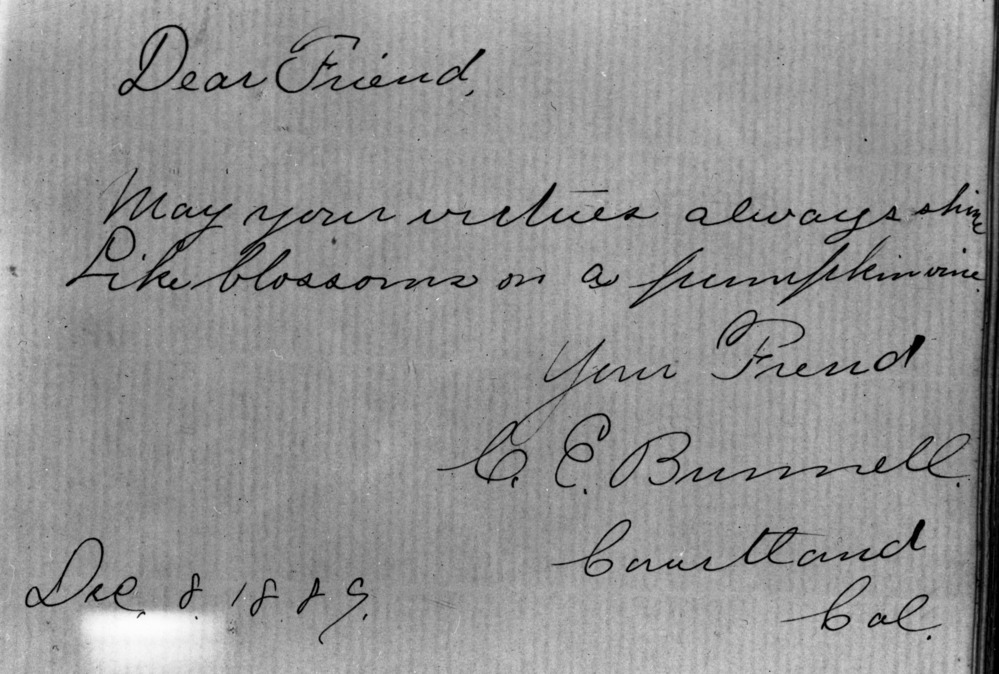 Dear Friend,
May your virtues always shine
Like blossoms on a pumpkin vine.
Your Friend
C. E. Bunnell.
Courtland
Cal.
Dec. 8. 1889.